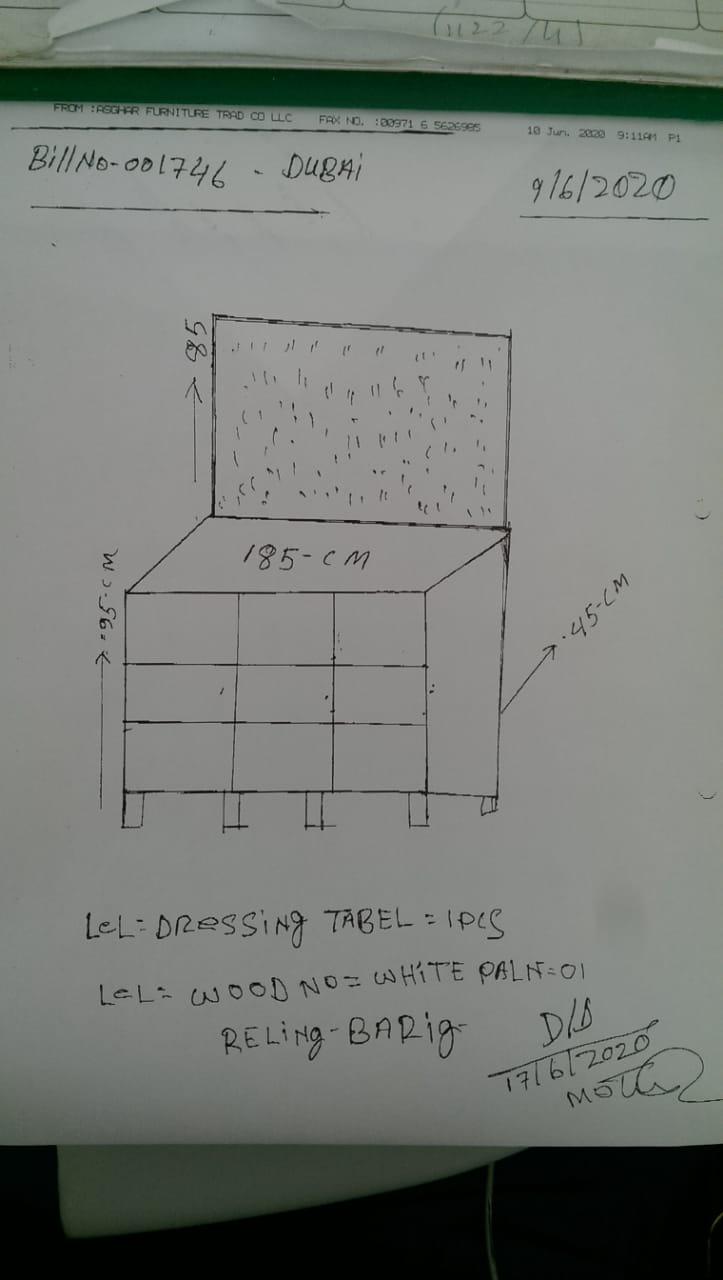 (1122/4)
FROM :ASGHAR FURNITURE TRAD CO LLC FAX NO. :00971 6 5626985 10 Jun. 2020 9:11AM P1
Bill No-001746 - DUBAi
9/6/2020
85
185-CM
95-CM
45-CM
LCL= DRESSiNG TABEL = 1PCS
LCL= WOOD NO= WHiTE PALN=01
RELiNg-BARig-
D/D
17/6/2020